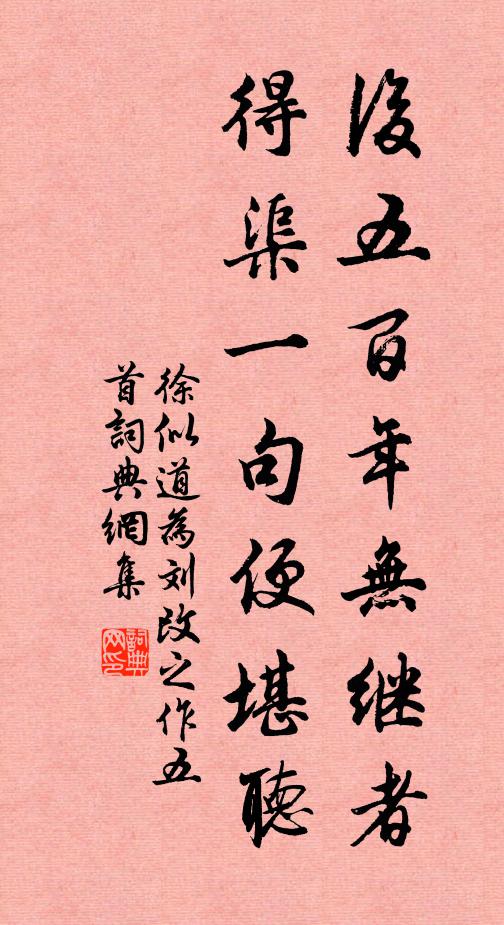 後五百年無継者
得渠一句便堪聽
徐似道為刘改之作五
首詞典網集
詞典网印